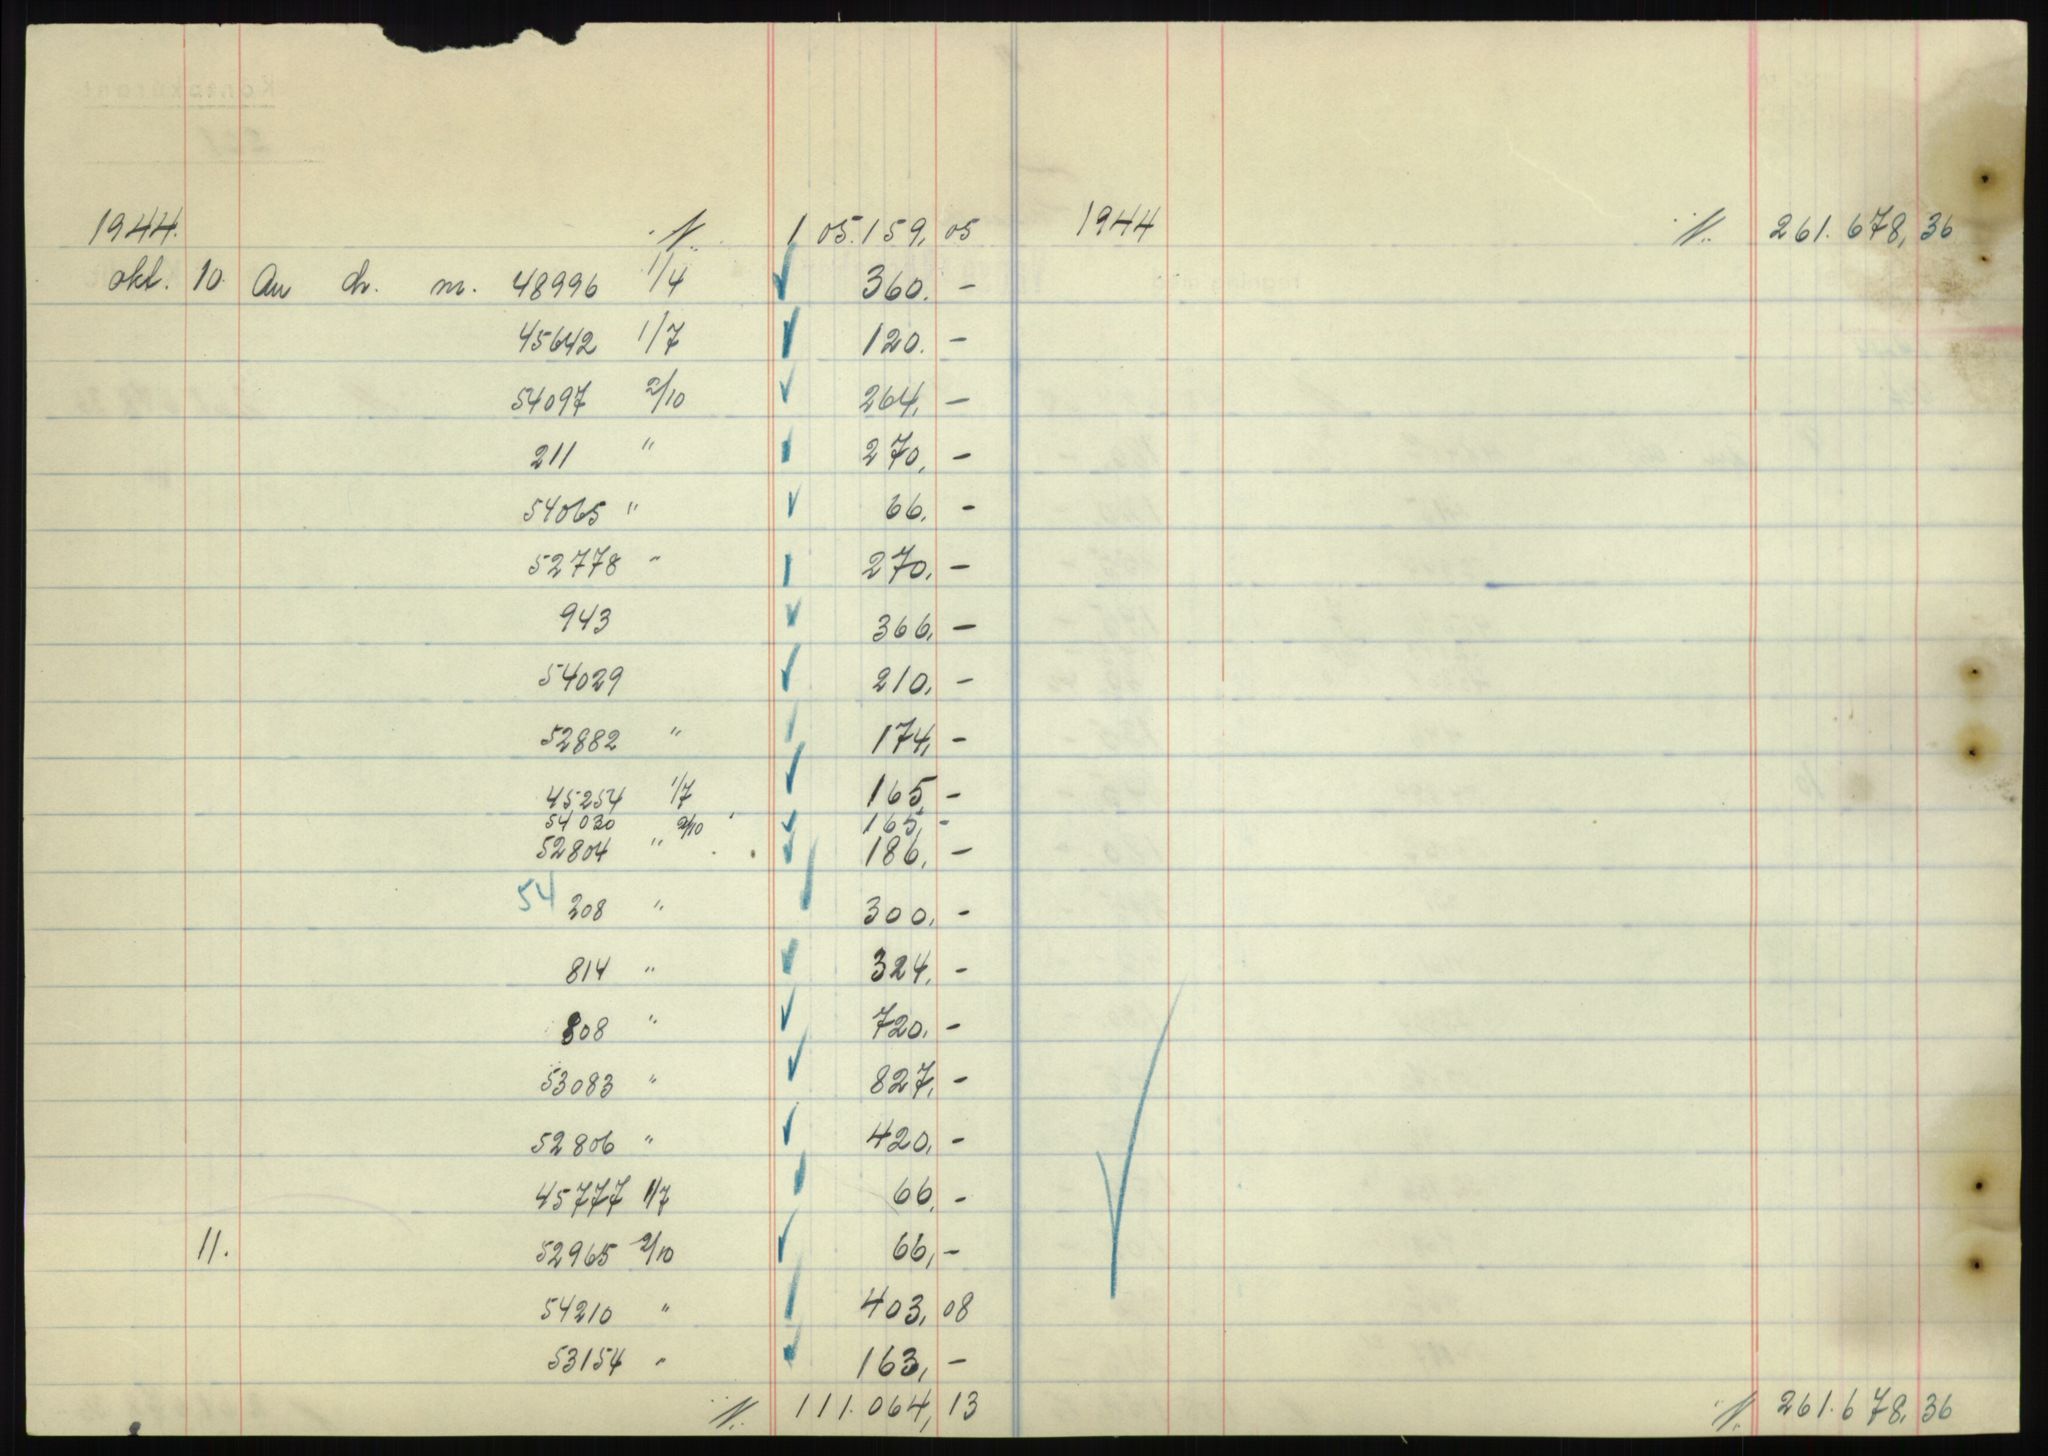 1944. ·/· 105.159,05 1944 ·/· 261.678,36
okt. 10. An ch. nr. 48996 1/4 360.-
45642 1/7 120.-
54097 2/10 264,-
211 " 270,-
54065 " 66,-
52778 " 270,-
943 366,-
54029 210,-
52882 " 174,-
45254 1/7 165,-
54030 2/10 165,-
52804 " 186,-
54 208 " 300,-
814 " 324,-
808 " 720,-
53083 " 827,-
52806 " 420,-
45777 1/7 66,-
11. 52965 2/10 66,-
54210 " 403,08
53154 " 163,-
·/· 111.064,13 ·/· 261.678,36